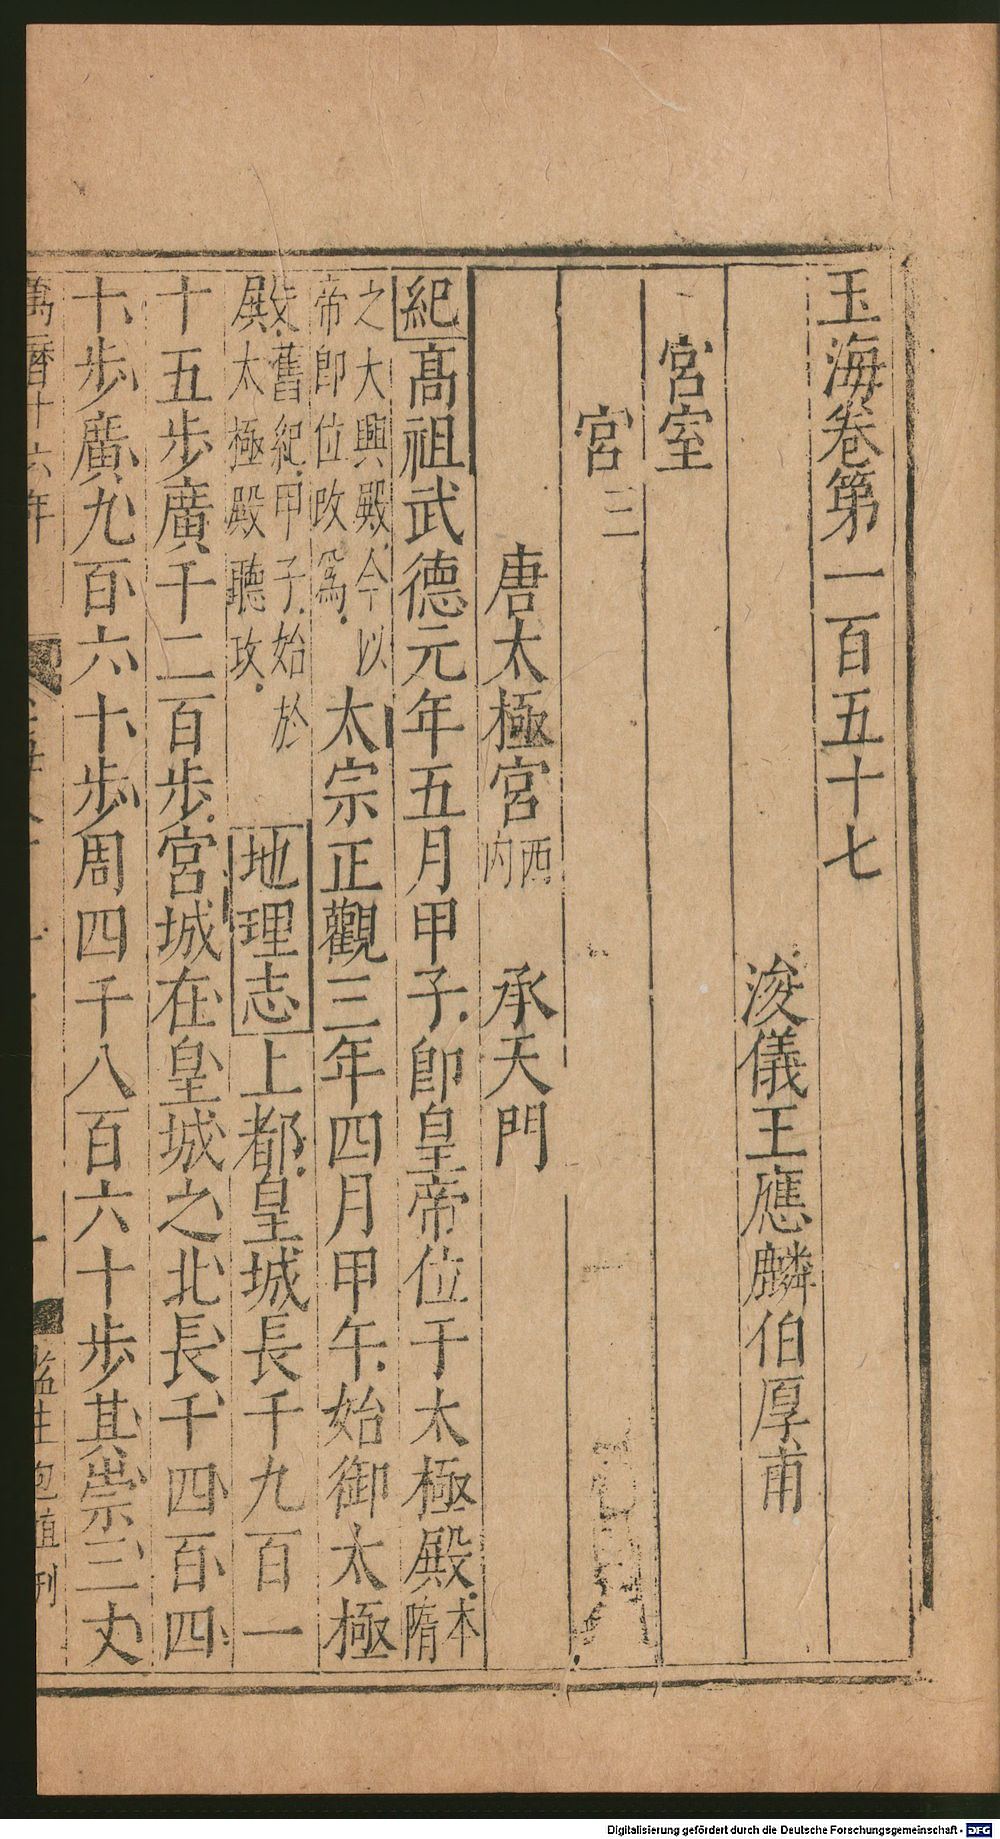 玉海卷第一百五十七
浚儀王應麟伯厚甫
宮室
宮三
唐太極宮西內 承天門
紀髙祖武德元年五月甲子即皇帝位于太極殿本隋
之大興殿今以
帝即位改爲太宗正觀三年四月甲午始御太極
殿舊紀甲子始於
殿太極殿聽政地理志上都皇城長千九百一
十五步廣千二百步宮城在皇城之北長千四百四
十步廣九百六十步周四千八百六十步其崇三丈
萬曆十六年
監生
刊
Digitalisierung gefördert durch die Deutsche Forschungsgemeinschaft - DFG